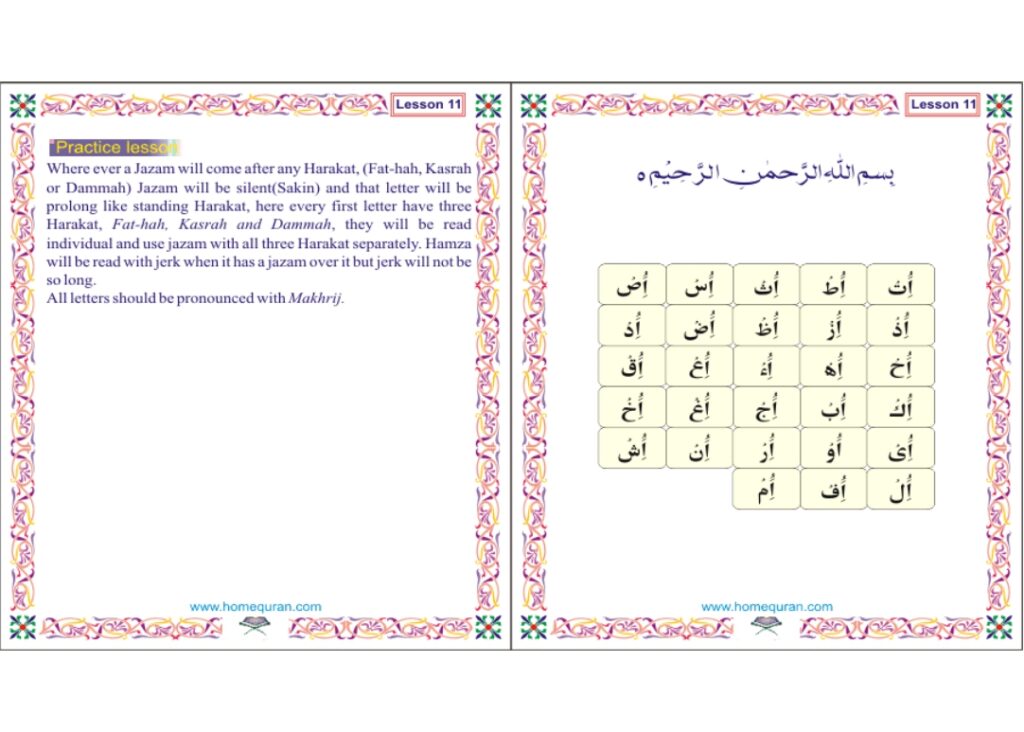 Lesson 11
"Practice lesson
Where ever a Jazam will come after any Harakat, (Fat-hah, Kasrah
or Dammah) Jazam will be silent(Sakin) and that letter will be
prolong like standing Harakat, here every first letter have three
Harakat, Fat-hah, Kasrah and Dammah, they will be read
individual and use jazam with all three Harakat separately. Hamza
will be read with jerk when it has a jazam over it but jerk will not be
so long.
All letters should be pronounced with Makhrij.
www.homequran.com
Lesson 11
بِسمِ اللّٰهِ الرَّحمٰنِ الرَّحِيْمِ ه
اَُِتْ اَُِطْ اَُِثْ اَُِسْ اَُِصْ
اَُِذْ اَُِزْ اَُِظْ اَُِضْ اَُِدْ
اَُِحْ اَُِهْ اَُِءْ اَُِعْ اَُِقْ
اَُِكْ اَُِبْ اَُِجْ اَُِغْ اَُِخْ
اَُِىْ اَُِوْ اَُِرْ اَُِنْ اَُِشْ
اَُِلْ اَُِفْ اَُِمْ
www.homequran.com